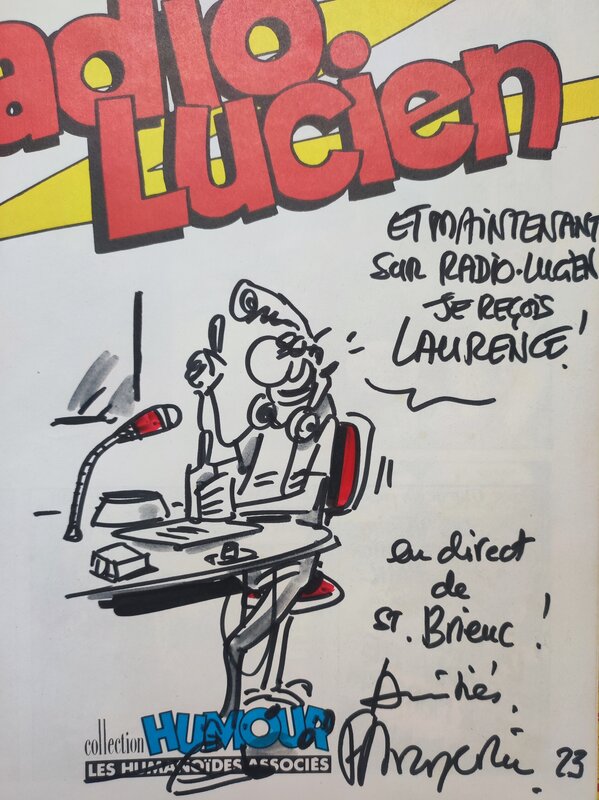 adio
Lucien
ET MAINTENANT
SUR RADIO-LUCIEN
JE REÇOIS
LAURENCE!
en direct
de
ST. Brieuc!
Amitiés.
Margerin. 23
collection HUMOUR
LES HUMANOÏDES ASSOCIÉS